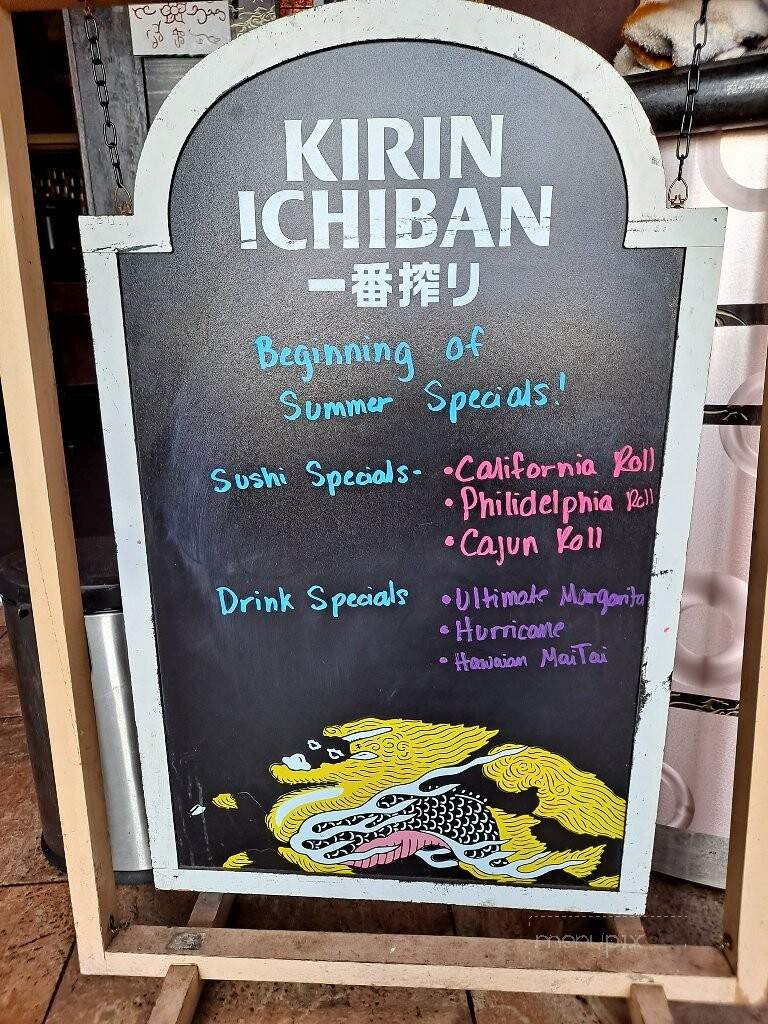 KIRIN
ICHIBAN
一番搾り
Beginning of
Summer Specials!
Sushi Specials- •California Roll
•Philidelphia Roll
•Cajun Roll
Drink Specials •Ultimate Margarita
•Hurricane
•Hawaiian MaiTai
menupix